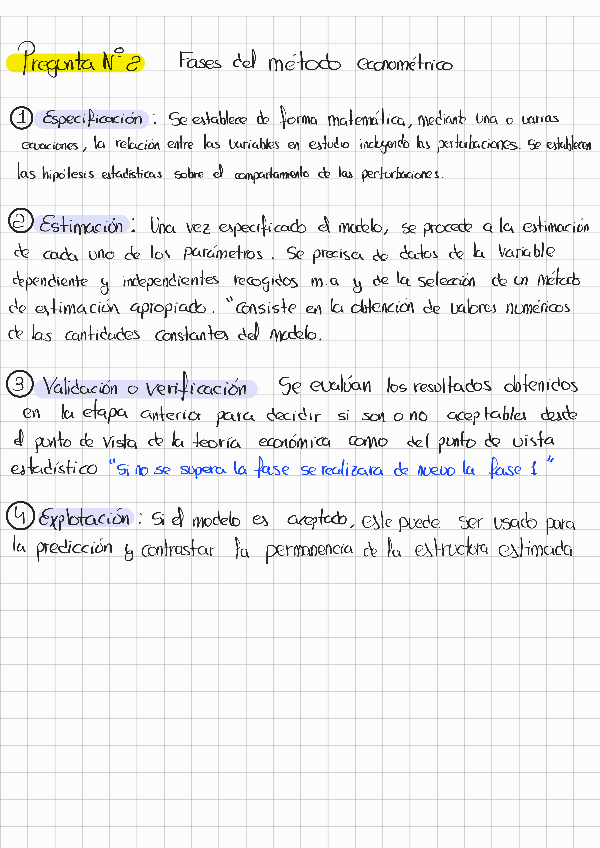 Pregunta N° 2 Fases del método econométrico
① Especificación: Se establece de forma matemática, mediante una o varias
ecuaciones, la relación entre las variables en estudio incluyendo las perturbaciones. Se establecen
las hipótesis estadísticas sobre el comportamiento de las perturbaciones.
② Estimación: Una vez especificado el modelo, se procede a la estimación
de cada uno de los parámetros. Se precisa de datos de la variable
dependiente y independientes recogidos m.a y de la selección de un método
de estimación apropiado. "consiste en la obtención de valores numéricos
de las cantidades constantes del modelo.
③ Validación o verificación Se evalúan los resultados obtenidos
en la etapa anterior para decidir si son o no aceptables desde
el punto de vista de la teoría económica como del punto de vista
estadístico "Si no se supera la fase se realizara de nuevo la fase 1"
④ Explotación: Si el modelo es aceptado, este puede ser usado para
la predicción y contrastar la permanencia de la estructura estimada